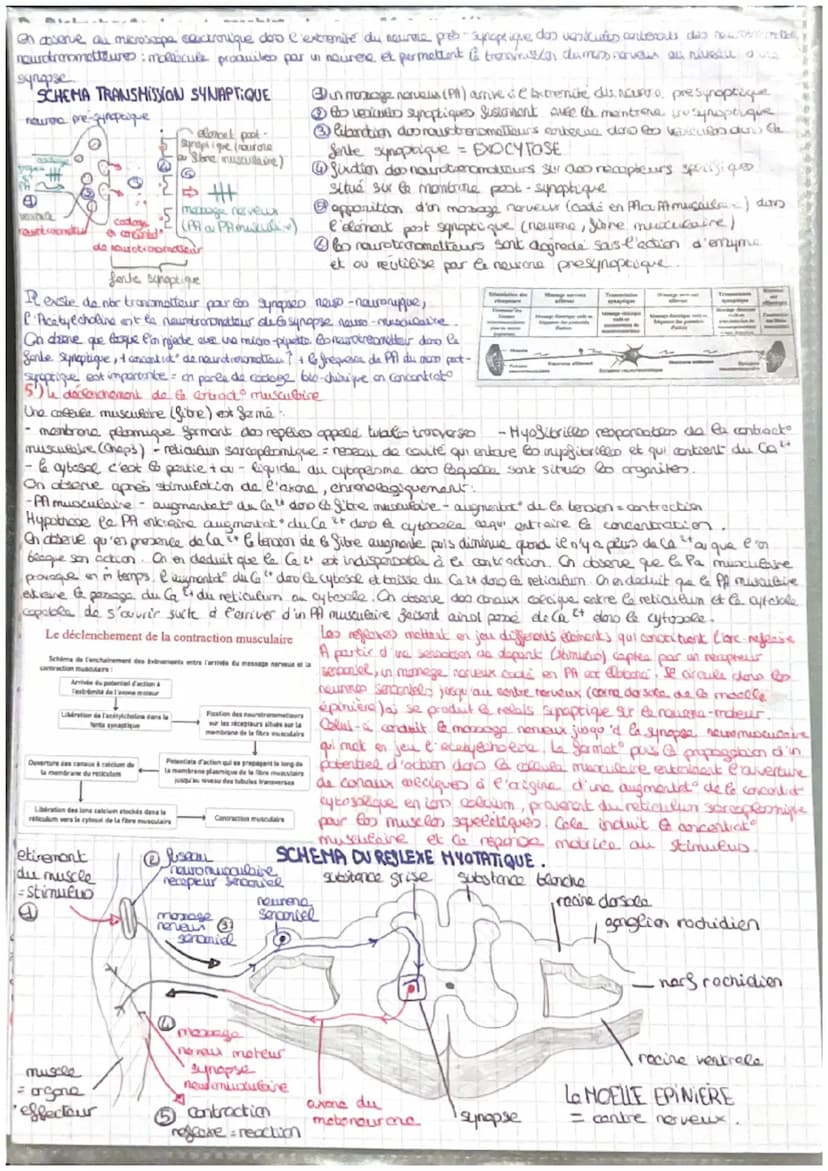 On observe au microscope electronique dans l'extremité du neurone pré-synaptique des vesicules contenant des
neurotransmetteurs : molécule produites par un neurone et permettant la transmission du mess nerveux au niveau d'une
synapse
SCHEMA TRANSMISSION SYNAPTIQUE
neurone pré-synaptique
element post-
synaptique (neurone
ou fibre musculaire)
message nerveux
(PA ou PA musculaire)
codage
en concentrat°
de neurotransmetteur
fente synaptique
① un message nerveux (PA) arrive à l'extremité du neuro. presynaptique
② les vesicules synaptiques fusionnent avec la membrane presynaptique
③ liberation des neurotransmetteurs contenue dans les vesicules dans la
fente synaptique = EXOCYTOSE
④ fixation des neurotransmetteurs sur des récepteurs spécifiques
situé sur la membrane post-synaptique
⑤ apparition d'un message nerveux (codé en PA ou PA musculaire) dans
l'element post synaptique (neurone, fibre musculaire)
⑥ les neurotransmetteurs sont degradé sous l'action d'enzyme
et ou réutilisé par le neurone presynaptique.
Il existe de nbr transmetteur pour les synapses neuro-neuronique,
l'Acetylcholine est le neurotransmetteur de la synapse neuro-musculaire.
On observe que lorsque l'on injecte avec une micro-pipette les neurotransmetteur dans la
fente synaptique, + concentrat° de neurotransmetteur ↑ + la frequence de PA du mess post-
synaptique est importante = on parle de codage bio-chimique en concentrat°
5°) Le déclenchement de la contract° musculaire
Une cellule musculaire (fibre) est formé :
- membrane plasmique forment des replies appelé tubules transverses - Myofibrilles responsables de la contract°
musculaire (Chap5) - reticulum sarcoplasmique = reseau de cavité qui entoure les myofibrilles et qui contient du Ca²⁺
- le cytosol c'est la partie + ou - liquide du cytoplasme dans laquelle sont situés les organites.
On observe après stimulation de l'axone, chronologiquement :
- PA musculaire - augmentat° du Ca²⁺ dans la fibre musculaire - augmentat° de la tension = contraction
Hypothese le PA entraine augmentat° du Ca²⁺ dans le cytosole ce qui entraine la concentration.
On observe qu'en presence de Ca²⁺ la tension de la fibre augmente puis diminue quand il n'y a plus de Ca²⁺ ou que l'on
bloque son action. On en deduit que le Ca²⁺ est indispensable à la contraction. On observe que le Pa musculaire
provoque en m̂ temps l'augmentat° du Ca²⁺ dans le cytosol et baisse du Ca²⁺ dans le reticulum. On en deduit que le PA musculaire
entraine le passage du Ca²⁺ du reticulum au cytosole. On observe des canaux calcique entre le reticulum et le cytosole
capable de s'ouvrir suite à l'arriver d'un PA musculaire faisant ainsi passé de Ca²⁺ dans le cytosole.
Le déclenchement de la contraction musculaire
Schéma de l'enchainement des évènements entre l'arrivée du message nerveux et la
contraction musculaire :
Arrivée du potentiel d'action à
l'extrémité de l'axone moteur
Libération de l'acétylcholine dans la
fente synaptique
Fixation des neurotransmetteurs
sur les récepteurs situés sur la
membrane de la fibre musculaire
Ouverture des canaux à calcium de
la membrane du reticulum
Potentiels d'action qui se propagent le long de
la membrane plasmique de la fibre musculaire
jusqu'au niveau des tubules transverses
Libération des ions calcium stockés dans le
réticulum vers le cytosol de la fibre musculaire
Contraction musculaire
Les reflexes mettent en jeu différents éléments qui constituent l'arc-reflexe
A partir d'une sensation de depart (stimulus) captée par un récepteur
sensoriel, un message nerveux codé en PA est élaboré. Il circule dans les
neurones sensoriels jusqu'au centre nerveux (corne dorsale de la moelle
épinière) où se produit le relais synaptique sur le neurone-moteur.
Celui-ci conduit le message nerveux jusqu'à la synapse neuromusculaire
qui met en jeu l'acetylcholine. La format° puis la propagation d'un
potentiel d'action dans la cellule musculaire entrainent l'ouverture
de canaux calciques à l'origine d'une augmentat° de la concentrat°
cytosolique en ions calcium, provenant du reticulum sarcoplasmique
pour les muscles squelettiques. Cela induit la contract°
musculaire et la reponse motrice au stimulus.
SCHEMA DU REFLEXE MYOTATIQUE.
etirement
du muscle
= stimulus
①
② fuseau
neuromusculaire
recepteur sensoriel
message
nerveux ③
sensoriel
neurone
sensoriel
substance grise
substance blanche
racine dorsale
ganglion rachidien
nerf rachidien
racine ventrale
④
message
nerveux moteur
synapse
neuromusculaire
muscle
= organe
effecteur
⑤ contraction
reflexe = reaction
axone du
motoneurone
synapse
La MOELLE EPINIERE
= centre nerveux.